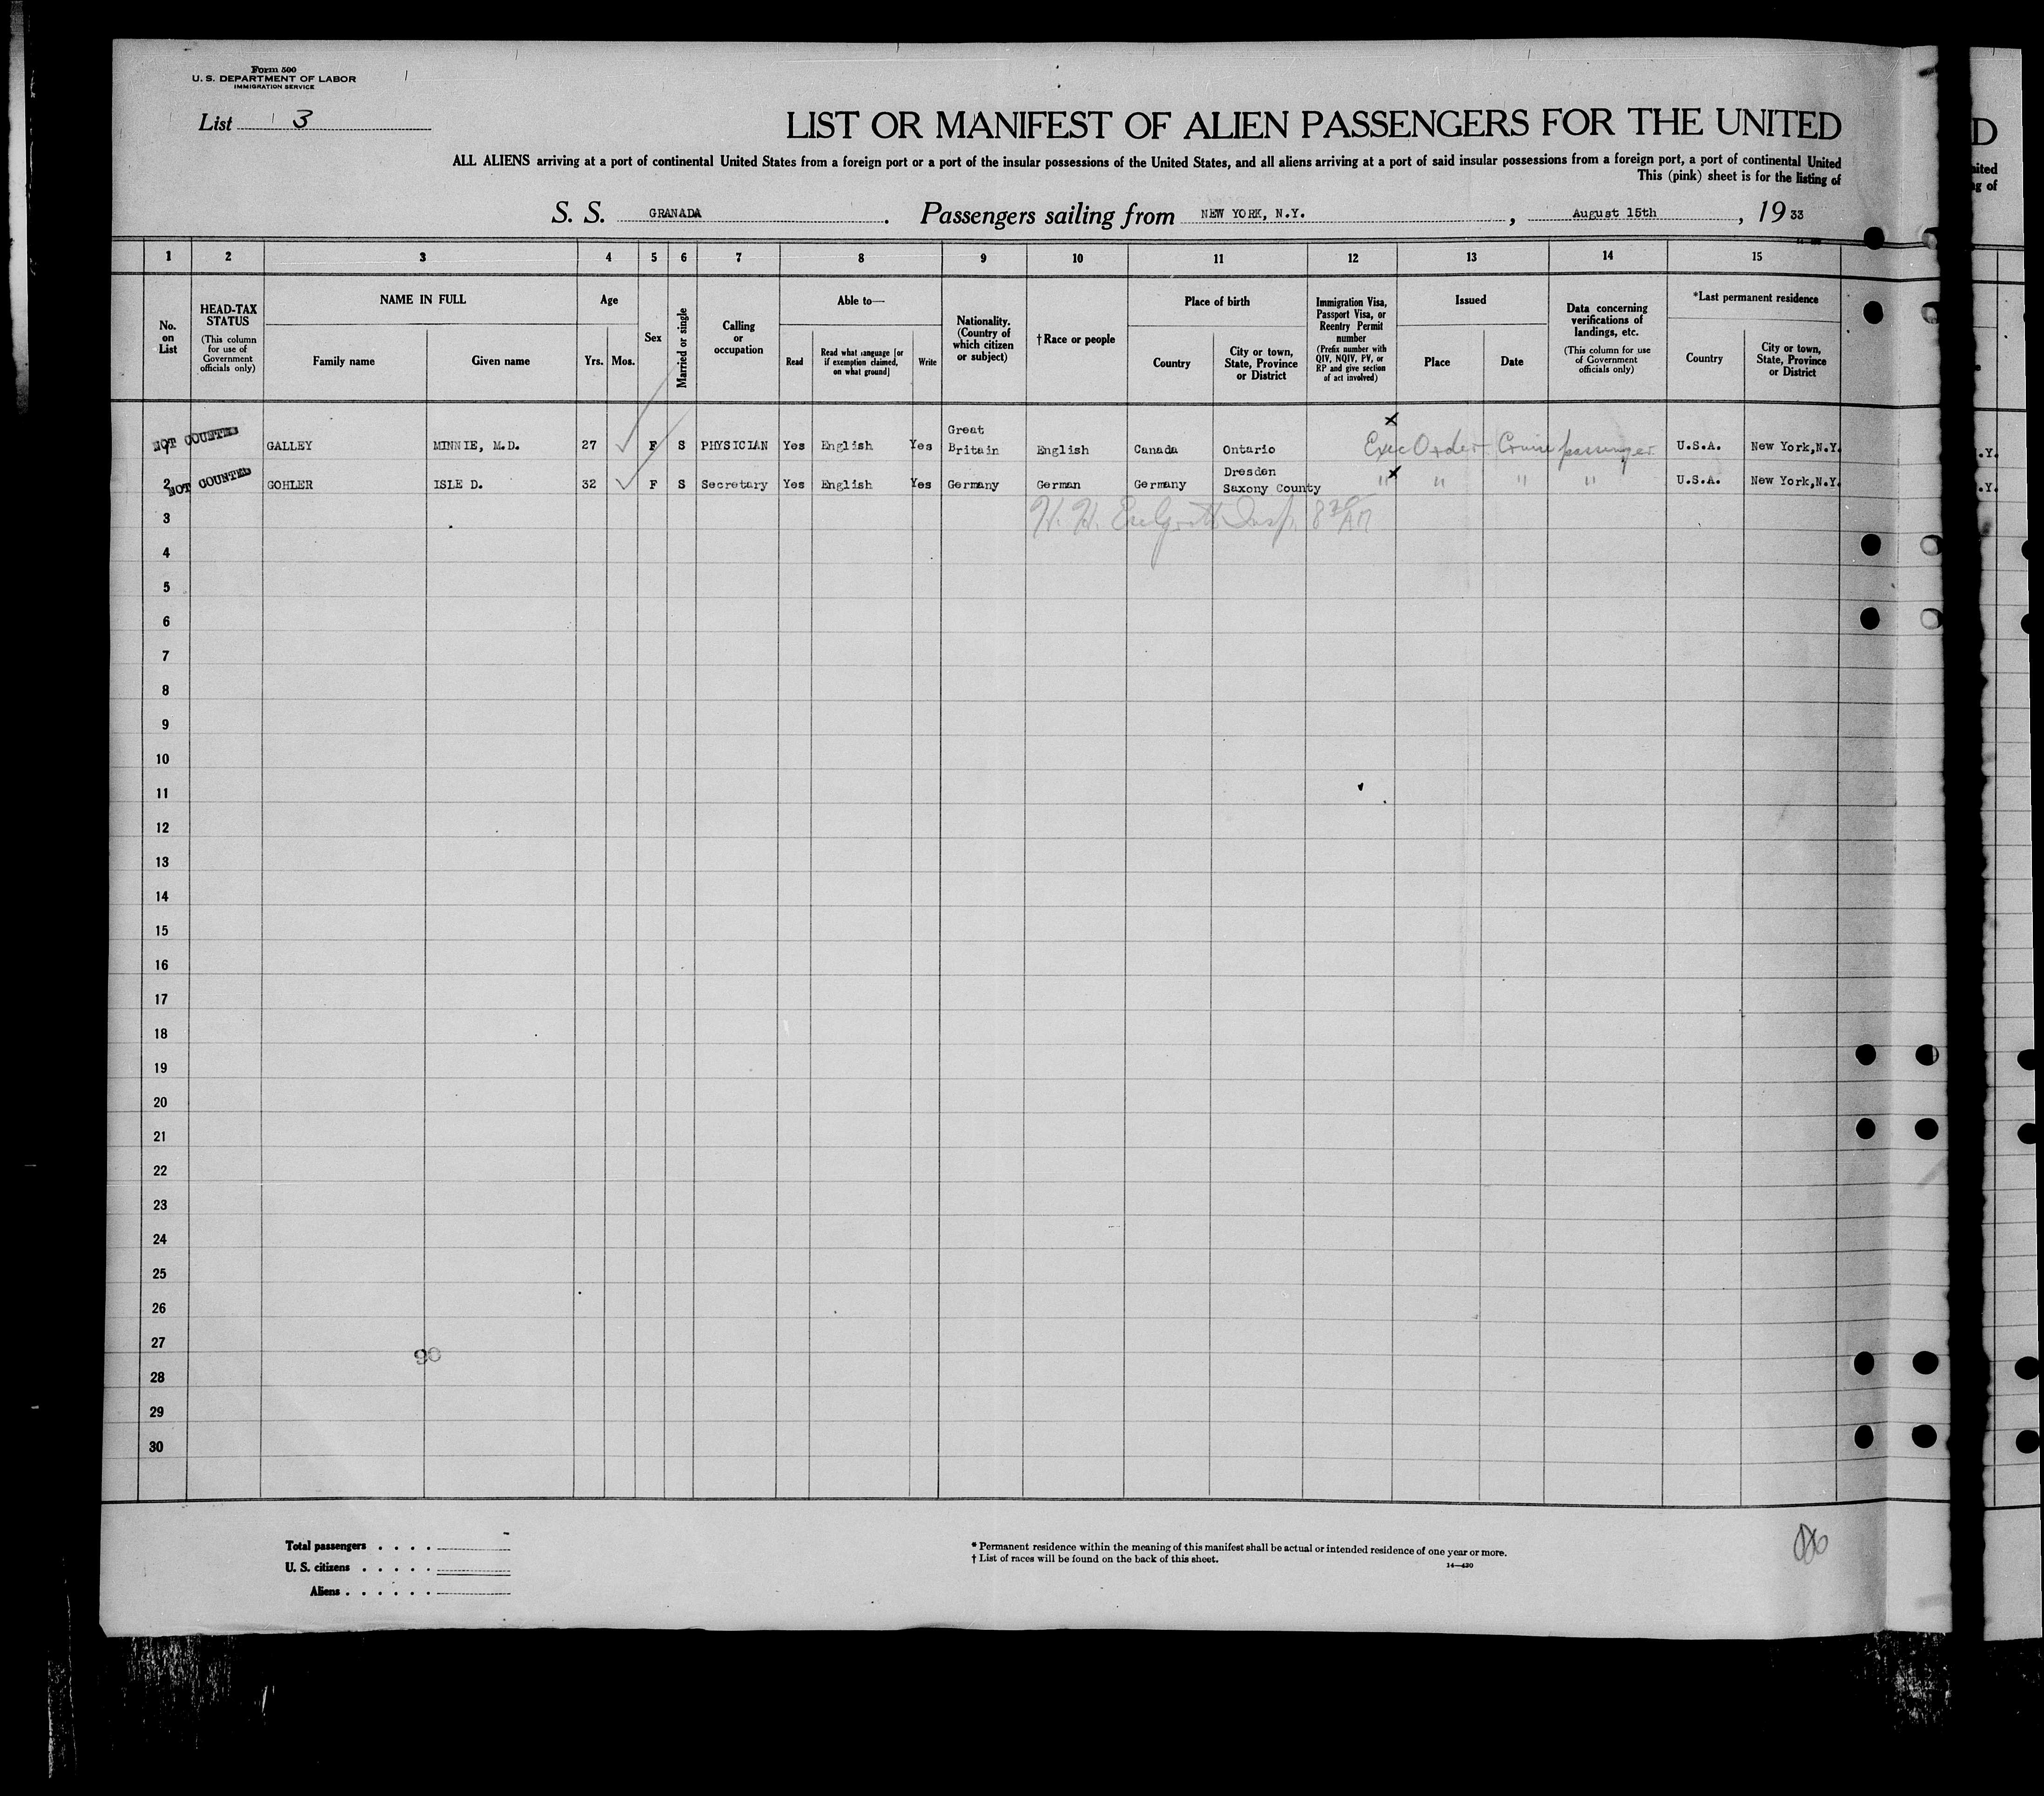 Form 500
U. S. DEPARTMENT OF LABOR
IMMIGRATION SERVICE
List 3
LIST OR MANIFEST OF ALIEN PASSENGERS FOR THE UNITED
ALL ALIENS arriving at a port of continental United States from a foreign port or a port of the insular possessions of the United States, and all aliens arriving at a port of said insular possessions from a foreign port, a port of continental United
This (pink) sheet is for the listing of
S. S. GRANADA. Passengers sailing from NEW YORK, N.Y., August 15th, 1933
1 2 3 4 5 6 7 8 9 10 11 12 13 14 15
No. on List
HEAD-TAX STATUS
(This column for use of Government officials only)
NAME IN FULL
Family name Given name
Age
Yrs. Mos.
Sex
Married or single
Calling or occupation
Able to—
Read
Read what language [or if exemption claimed, on what ground]
Write
Nationality. (Country of which citizen or subject)
†Race or people
Place of birth
Country
City or town, State, Province or District
Immigration Visa, Passport Visa, or Reentry Permit number
(Prefix number with QIV, NQIV, PV, or RP and give section of act involved)
Issued
Place Date
Data concerning verifications of landings, etc.
(This column for use of Government officials only)
*Last permanent residence
Country
City or town, State, Province or District
1 NOT COUNTED GALLEY MINNIE, M.D. 27 F S PHYSICIAN Yes English Yes Great Britain English Canada Ontario Exec Order - Cruise passenger U.S.A. New York,N.Y.
2 NOT COUNTED GOHLER ISLE D. 32 F S Secretary Yes English Yes Germany German Germany Dresden Saxony County " " " " U.S.A. New York,N.Y.
3
4
5
6
7
8
9
10
11
12
13
14
15
16
17
18
19
20
21
22
23
24
25
26
27
90
28
29
30
Total passengers
U. S. citizens
Aliens
* Permanent residence within the meaning of this manifest shall be actual or intended residence of one year or more.
† List of races will be found on the back of this sheet.
14—420